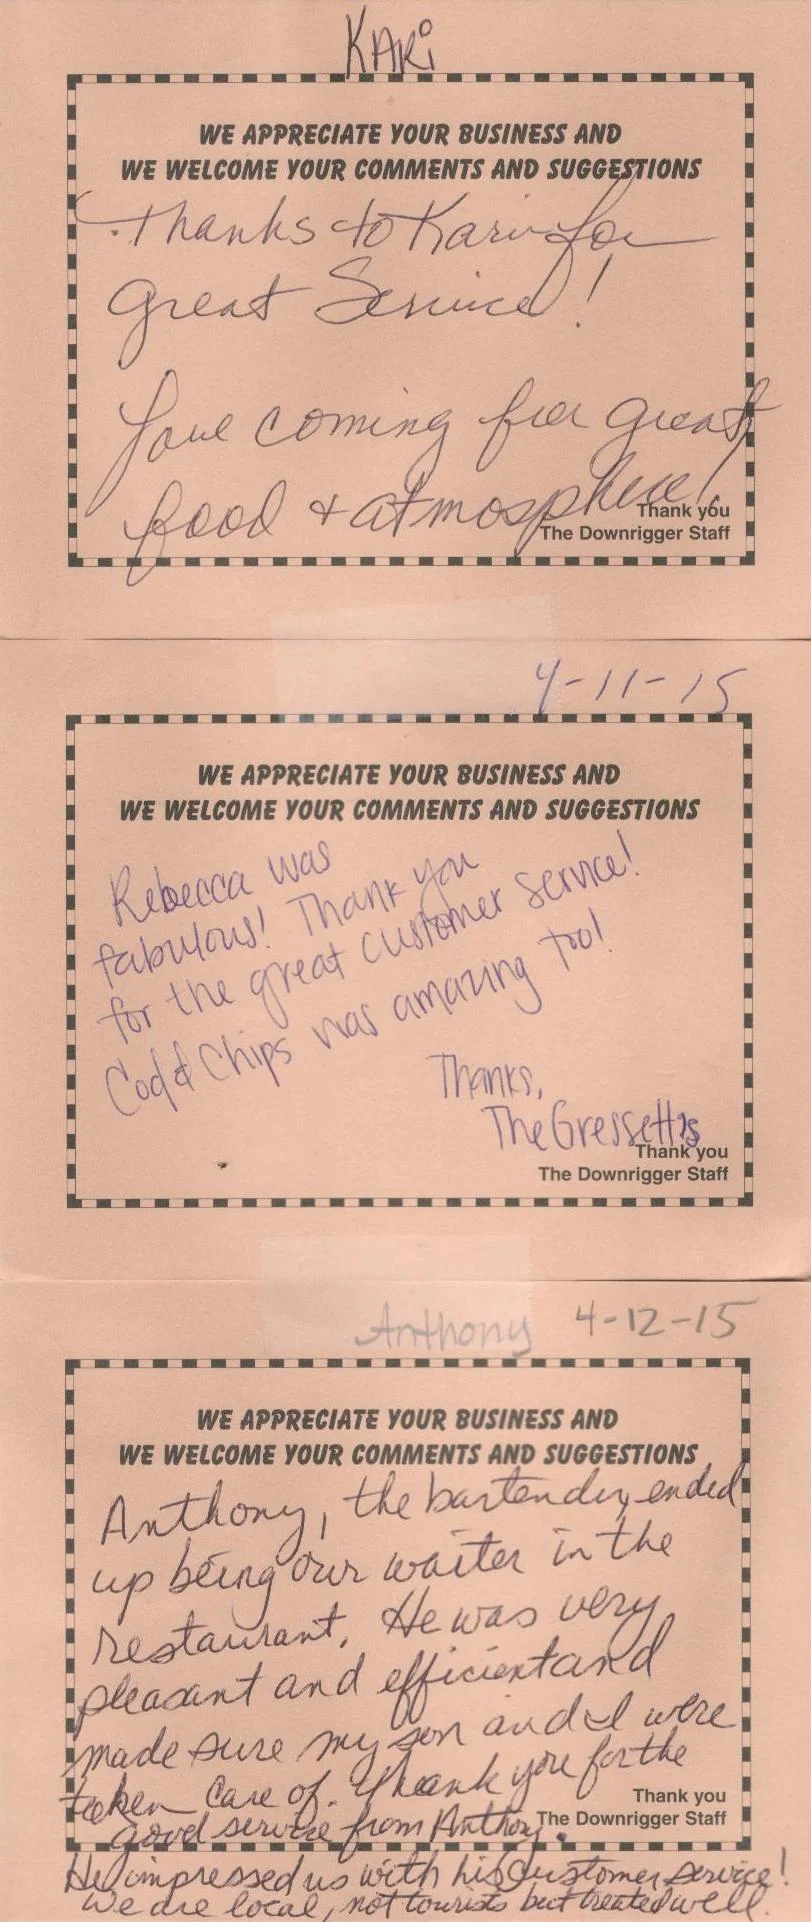 KARi
WE APPRECIATE YOUR BUSINESS AND
WE WELCOME YOUR COMMENTS AND SUGGESTIONS
Thanks to Kari for
great Service!
Love coming for great
food + atmosphere!
Thank you
The Downrigger Staff
4-11-15
WE APPRECIATE YOUR BUSINESS AND
WE WELCOME YOUR COMMENTS AND SUGGESTIONS
Rebecca was
fabulous! Thank you
for the great customer service!
Cod & Chips was amazing too!
Thanks,
The Gressetts
Thank you
The Downrigger Staff
Anthony 4-12-15
WE APPRECIATE YOUR BUSINESS AND
WE WELCOME YOUR COMMENTS AND SUGGESTIONS
Anthony, the bartender, ended
up being our waiter in the
restaurant. He was very
pleasant and efficient and
made sure my son and I were
taken care of. Thank you for the
good service from Anthony.
Thank you
The Downrigger Staff
He impressed us with his customer service!
We are local, not tourists but treated well.